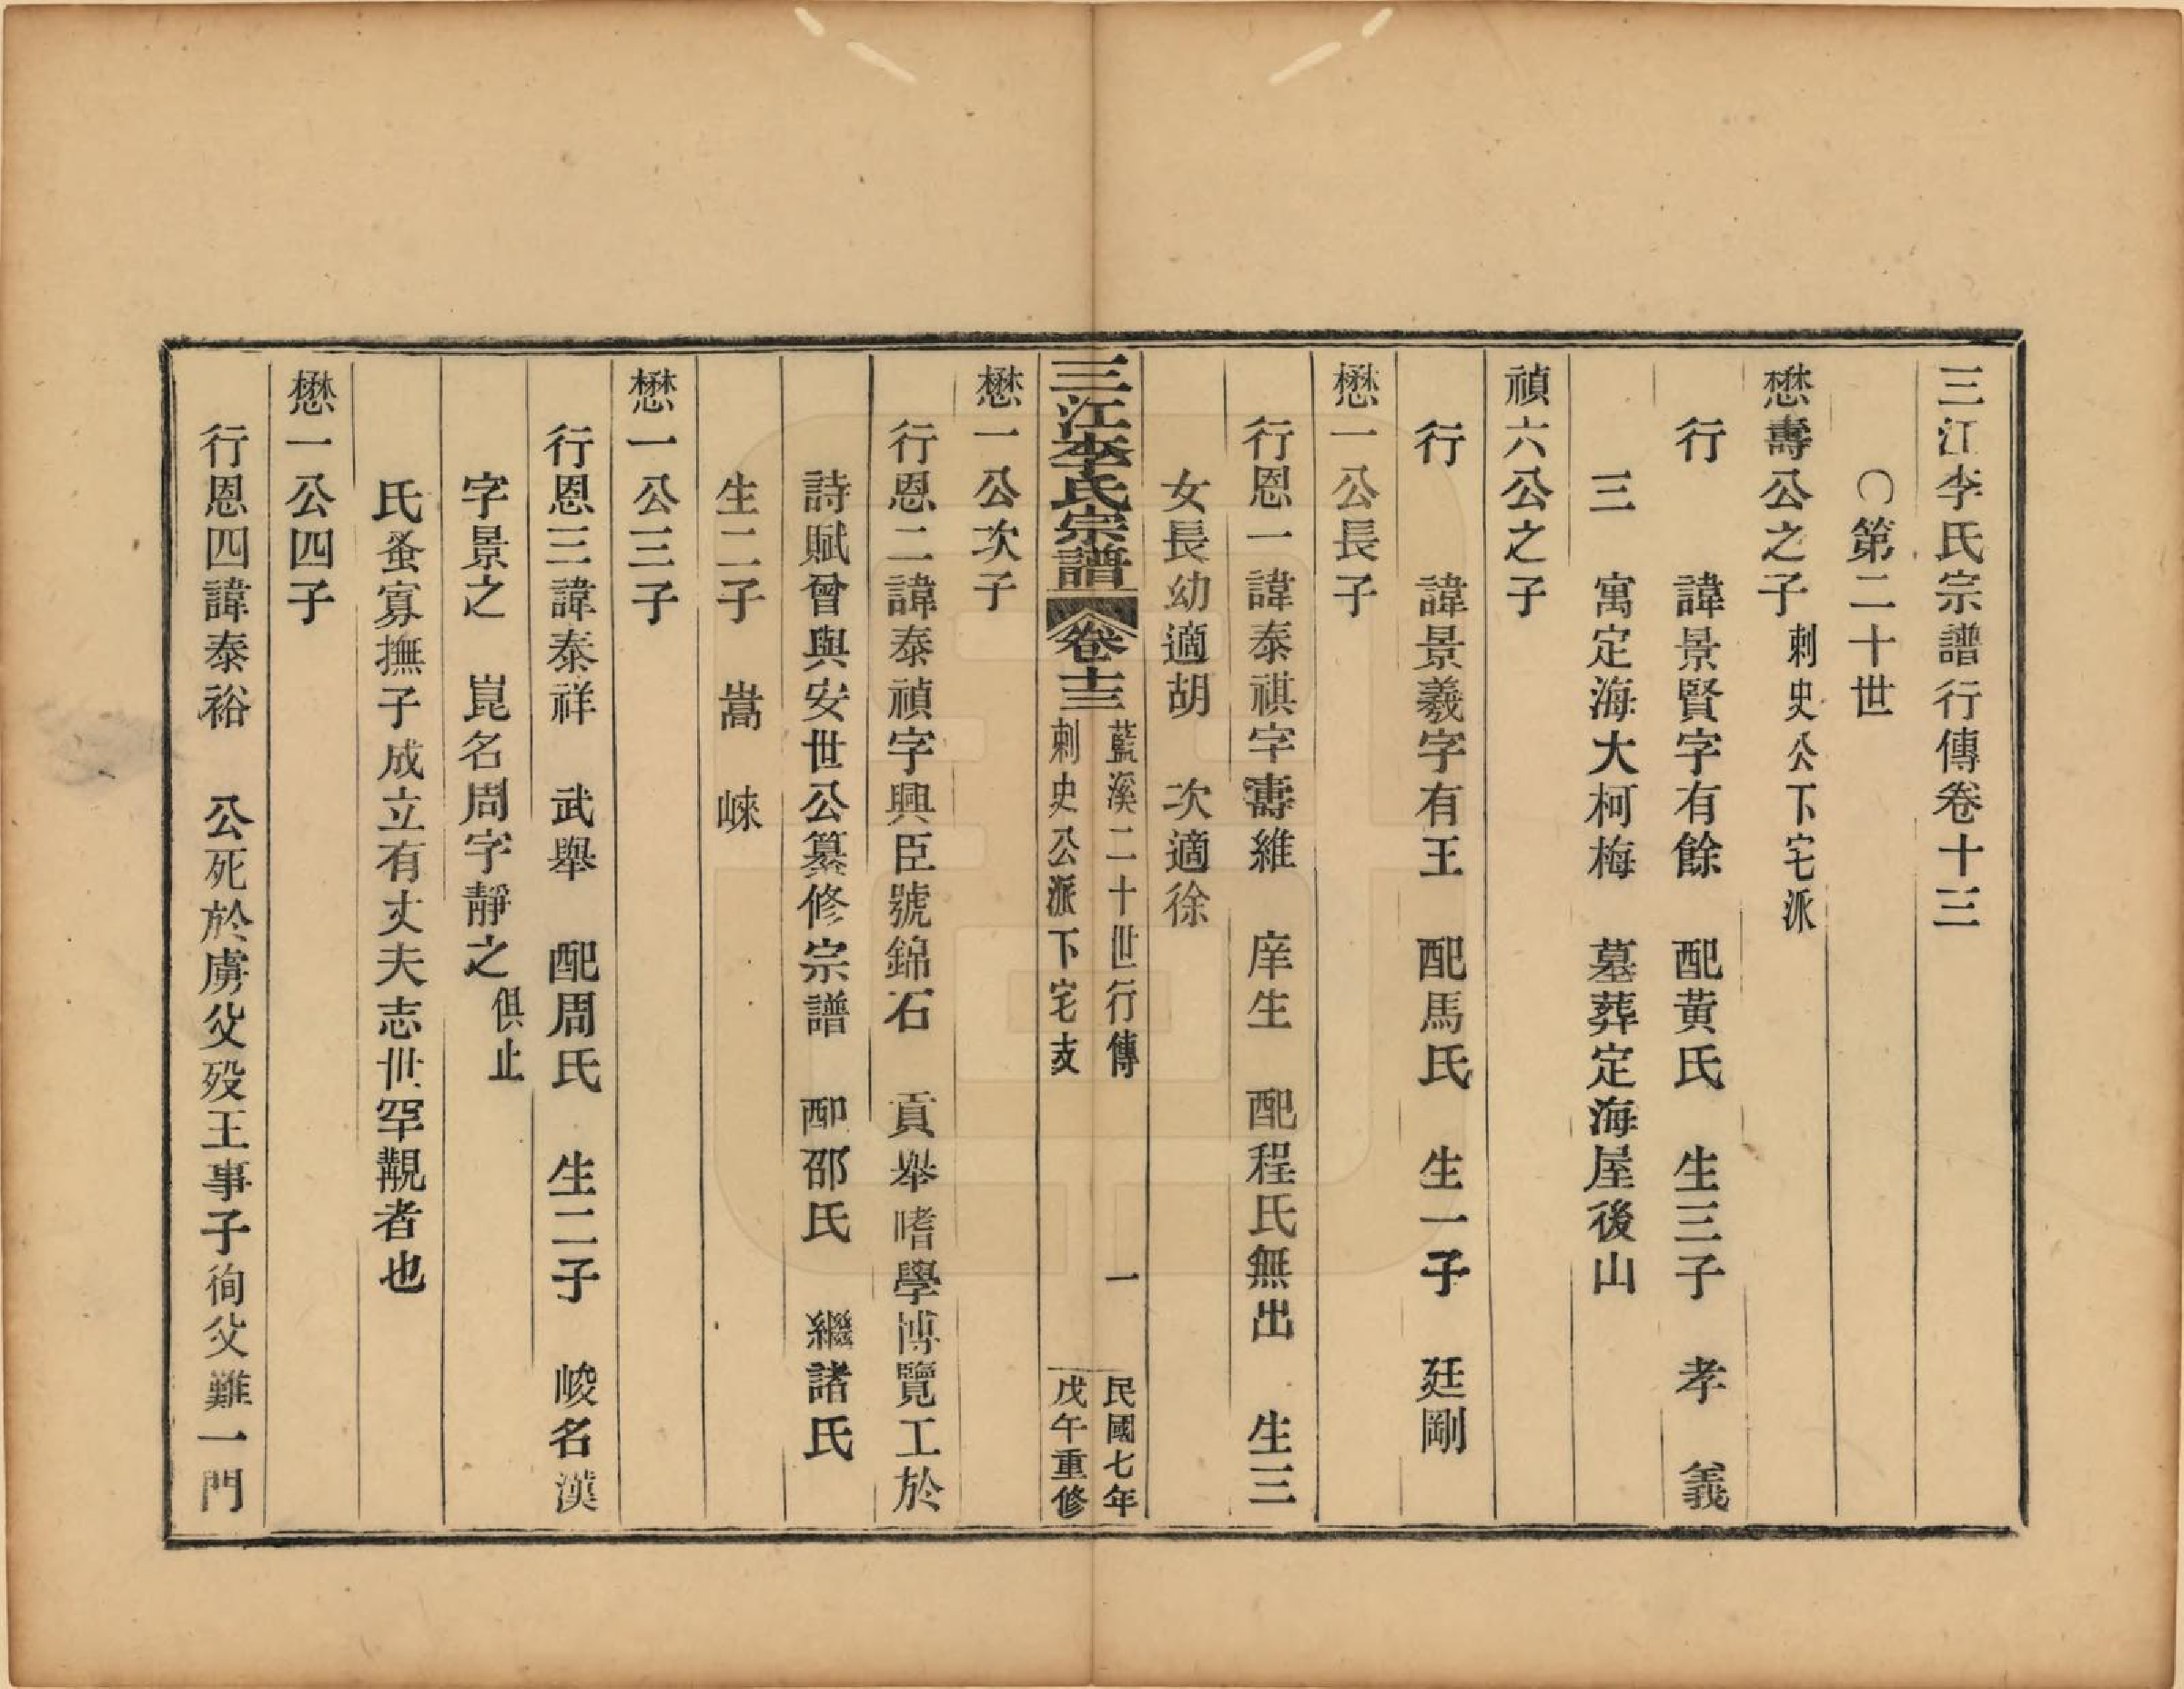 三江李氏宗譜行傳卷十三
〇第二十世
懋壽公之子刺史公下宅派
行　諱景賢字有餘　配黄氏　生三子　孝　義
三　寓定海大柯梅　墓葬定海屋後山
禎六公之子
行　諱景羲字有王　配馬氏　生一子　廷剛
懋一公長子
行恩一諱泰祺字壽維　庠生　配程氏無出　生三
女長幼適胡　次適徐
三江李氏宗譜　卷十三　藍溪二十世行傳　一　民國七年
刺史公派下宅支　戊午重修
懋一公次子
行恩二諱泰禎字興臣號錦石　貢舉嗜學博覽工於
詩賦曾與安世公纂修宗譜　配邵氏　繼諸氏
生二子　嵩　崍
懋一公三子
行恩三諱泰祥　武舉　配周氏　生二子　峻名漢
字景之　崑名周字靜之俱止
氏蚤寡撫子成立有丈夫志世罕覯者也
懋一公四子
行恩四諱泰裕　公死於虜父歿王事子徇父難一門